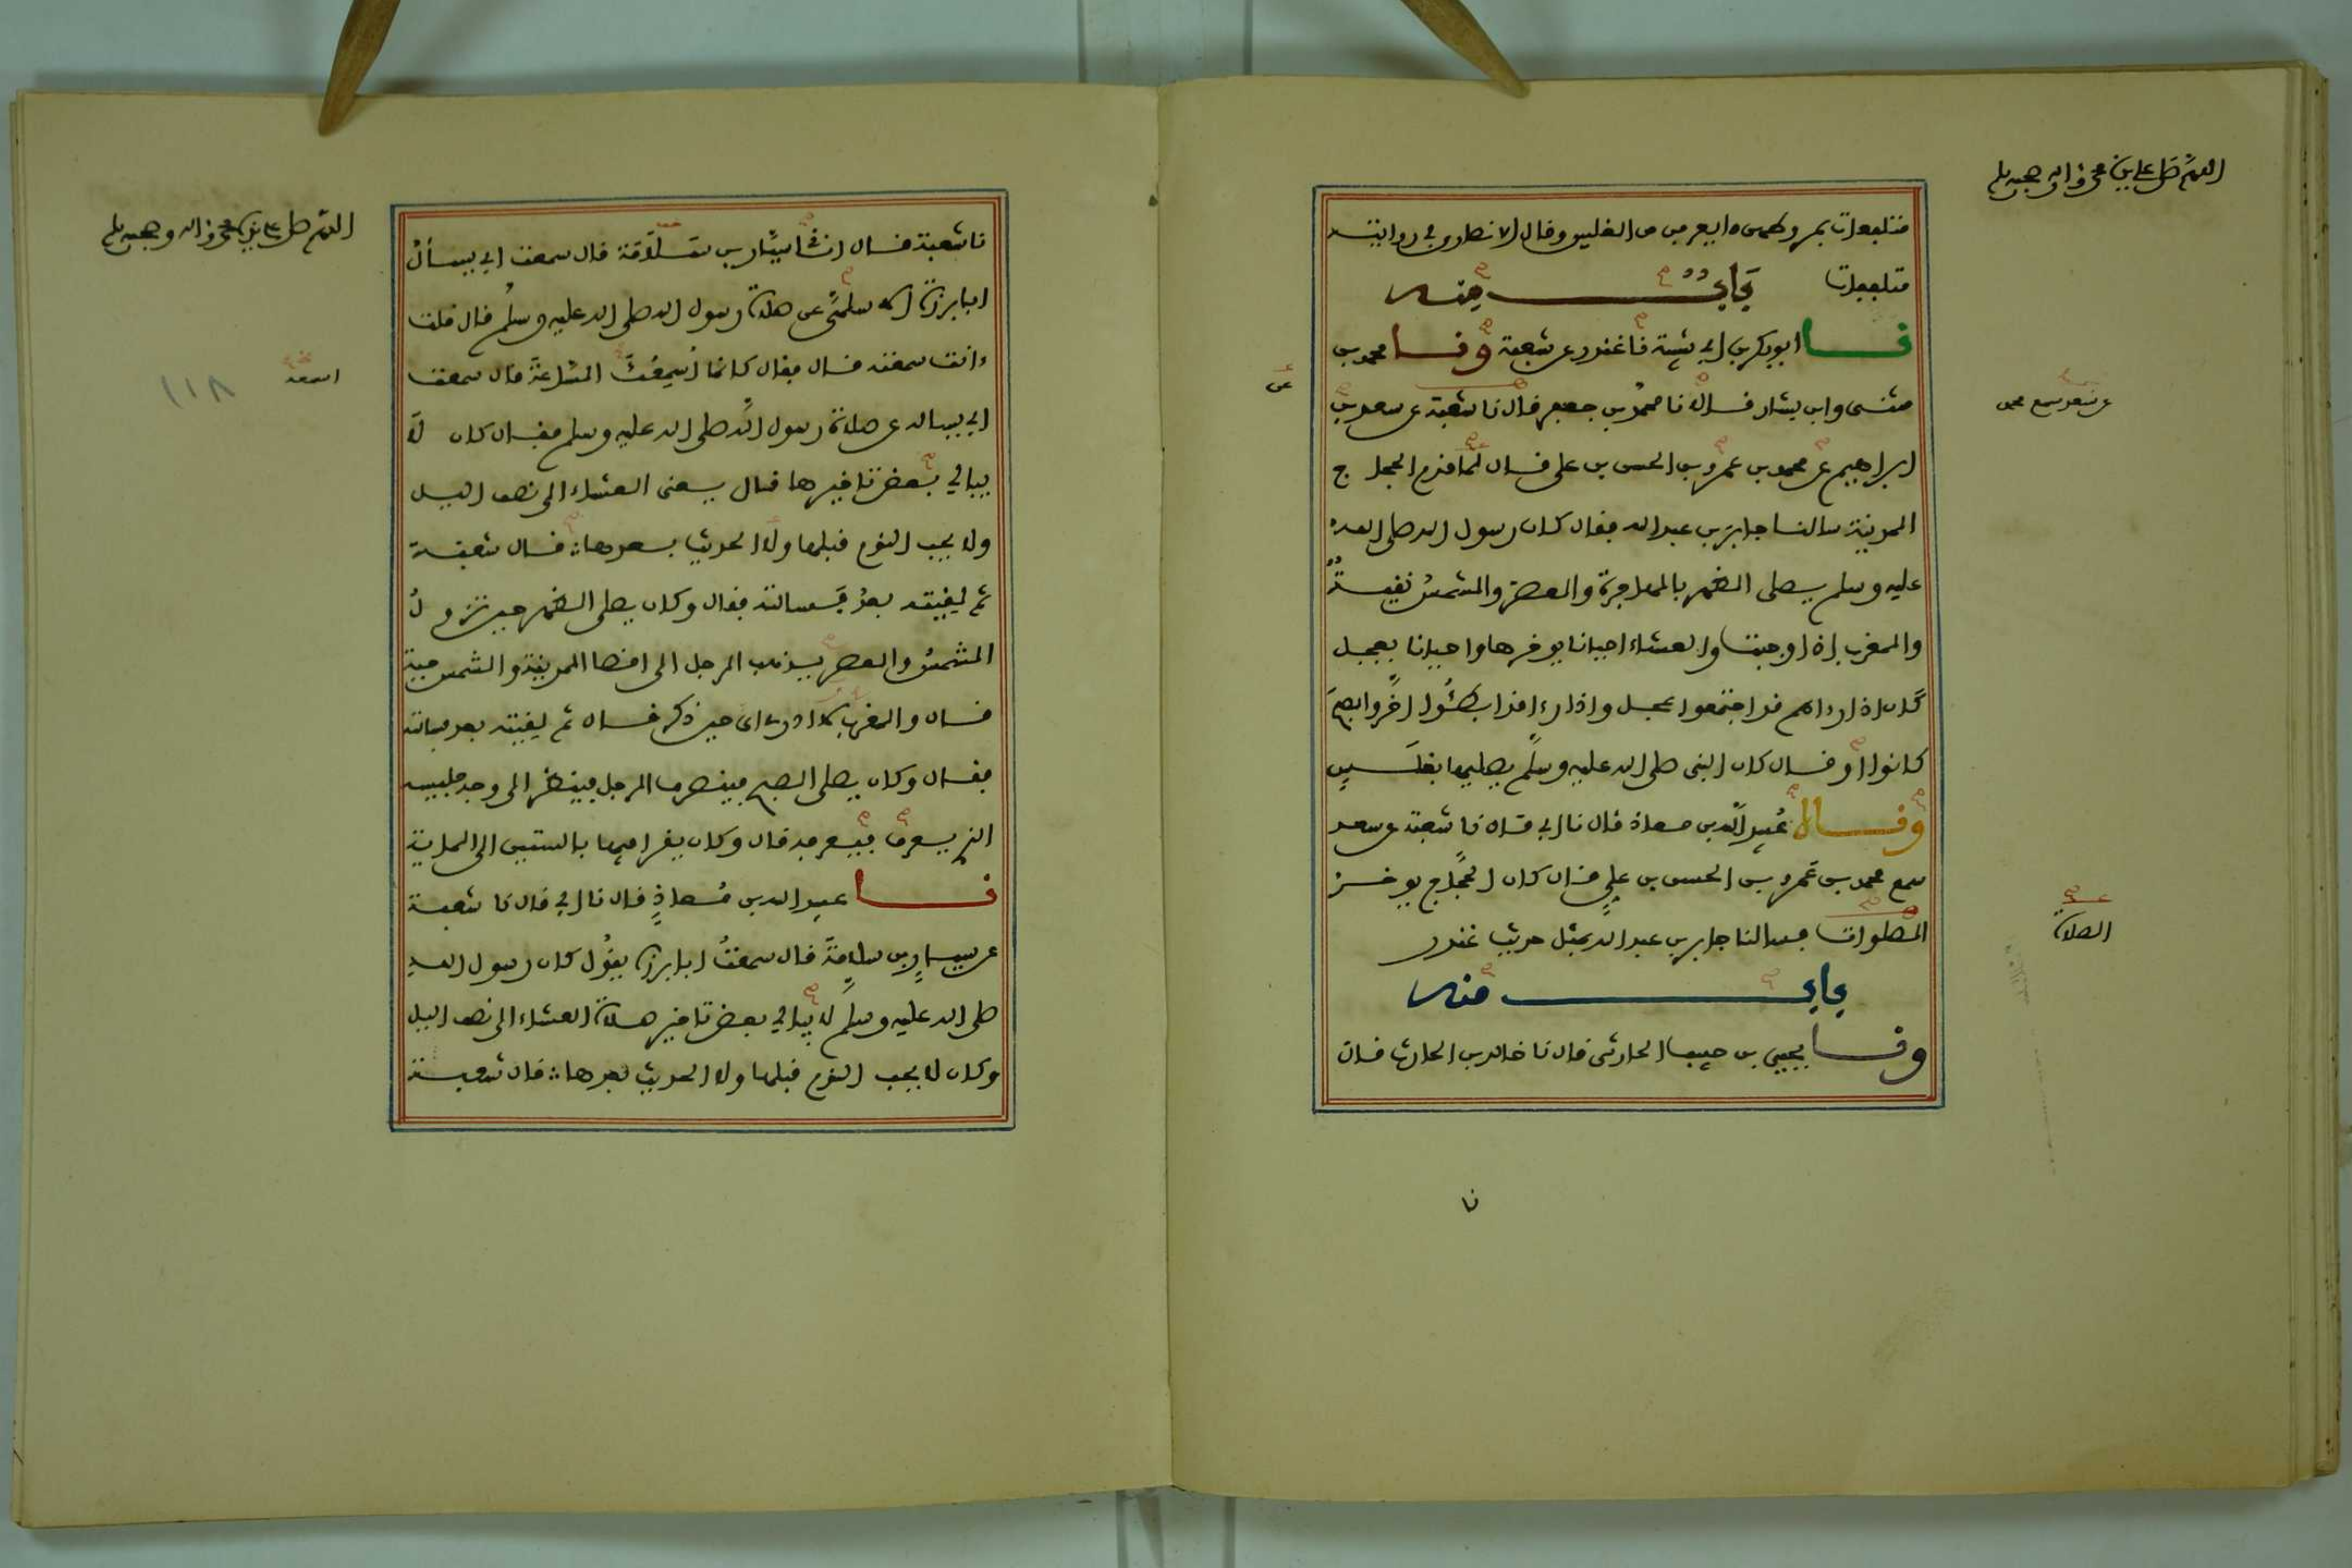 اللهم صل على نبينا محمد واله وصحبه وسلم
متلفعات بمروطهن ما يعرفن من الغلس وقال الانصاري في روايته
متلففات باب منه
نا ابو بكر بن ابي شيبة نا غندر عن شعبة ونا محمد بن
مثنى وابن بشار قالا نا محمد بن جعفر قال نا شعبة عن سعد بن
ابراهيم عن محمد بن عمرو بن الحسن بن علي قال لما قدم الحجاج
المدينة سالنا جابر بن عبد الله فقال كان رسول الله صلى الله
عليه وسلم يصلي الظهر بالهاجرة والعصر والشمس نقية
والمغرب اذا وجبت والعشاء احيانا يوخرها واحيانا يعجل
كان اذا راهم قد اجتمعوا عجل واذا رءاهم قد ابطئوا اخر والصبح
كانوا او قال كان النبي صلى الله عليه وسلم يصليها بغلس
وقال عبيد الله بن معاذ قال نا ابي قال نا شعبة عن سعد
سمع محمد بن عمرو بن الحسن بن علي قال كان الحجاج يوخر
الصلوات فسالنا جابر بن عبد الله بمثل حديث غندر
باب منه
ونا يحيى بن حبيب الحارثي قال نا خالد بن الحارث قال
عن سعد سمع محمد
الصلاة
عن
نا
اللهم صل على نبينا محمد واله وصحبه وسلم
نا شعبة قال انا سيار بن سلامة قال سمعت ابي يسأل
ابا برزة الاسلمي عن صلاة رسول الله صلى الله عليه وسلم قال قلت
ءانت سمعته قال فقال كانما اسمعك الساعة قال سمعت
ابي يساله عن صلاة رسول الله صلى الله عليه وسلم فقال كان لا
يبالي بعض تاخيرها قال يعنى العشاء الى نصف الليل
ولا يحب النوم قبلها ولا الحديث بعدها قال شعبة
ثم لقيته بعد فسالته فقال وكان يصلي الظهر حين تزول
الشمس والعصر يذهب الرجل الى اقصا المدينة والشمس حية
قال والمغرب لا ادري اي حين ذكر قال ثم لقيته بعد فسالته
فقال وكان يصلي الصبح فينصرف الرجل فينظر الى وجه جليسه
الذي يعرف فيعرفه قال وكان يقرا فيها بالستين الى الماية
نا عبيد الله بن معاذ قال نا ابي قال نا شعبة
عن سيار بن سلامة قال سمعت ابا برزة يقول كان رسول الله
صلى الله عليه وسلم لا يبالي بعض تاخير صلاة العشاء الى نصف الليل
وكان لا يحب النوم قبلها ولا الحديث بعدها قال شعبة
اسمعه
١١٨